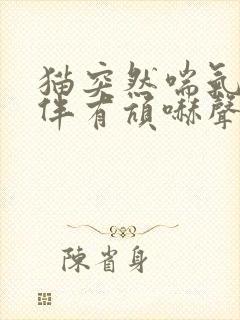 猫突然喘氣
伴有頑嚇聲
陳省身